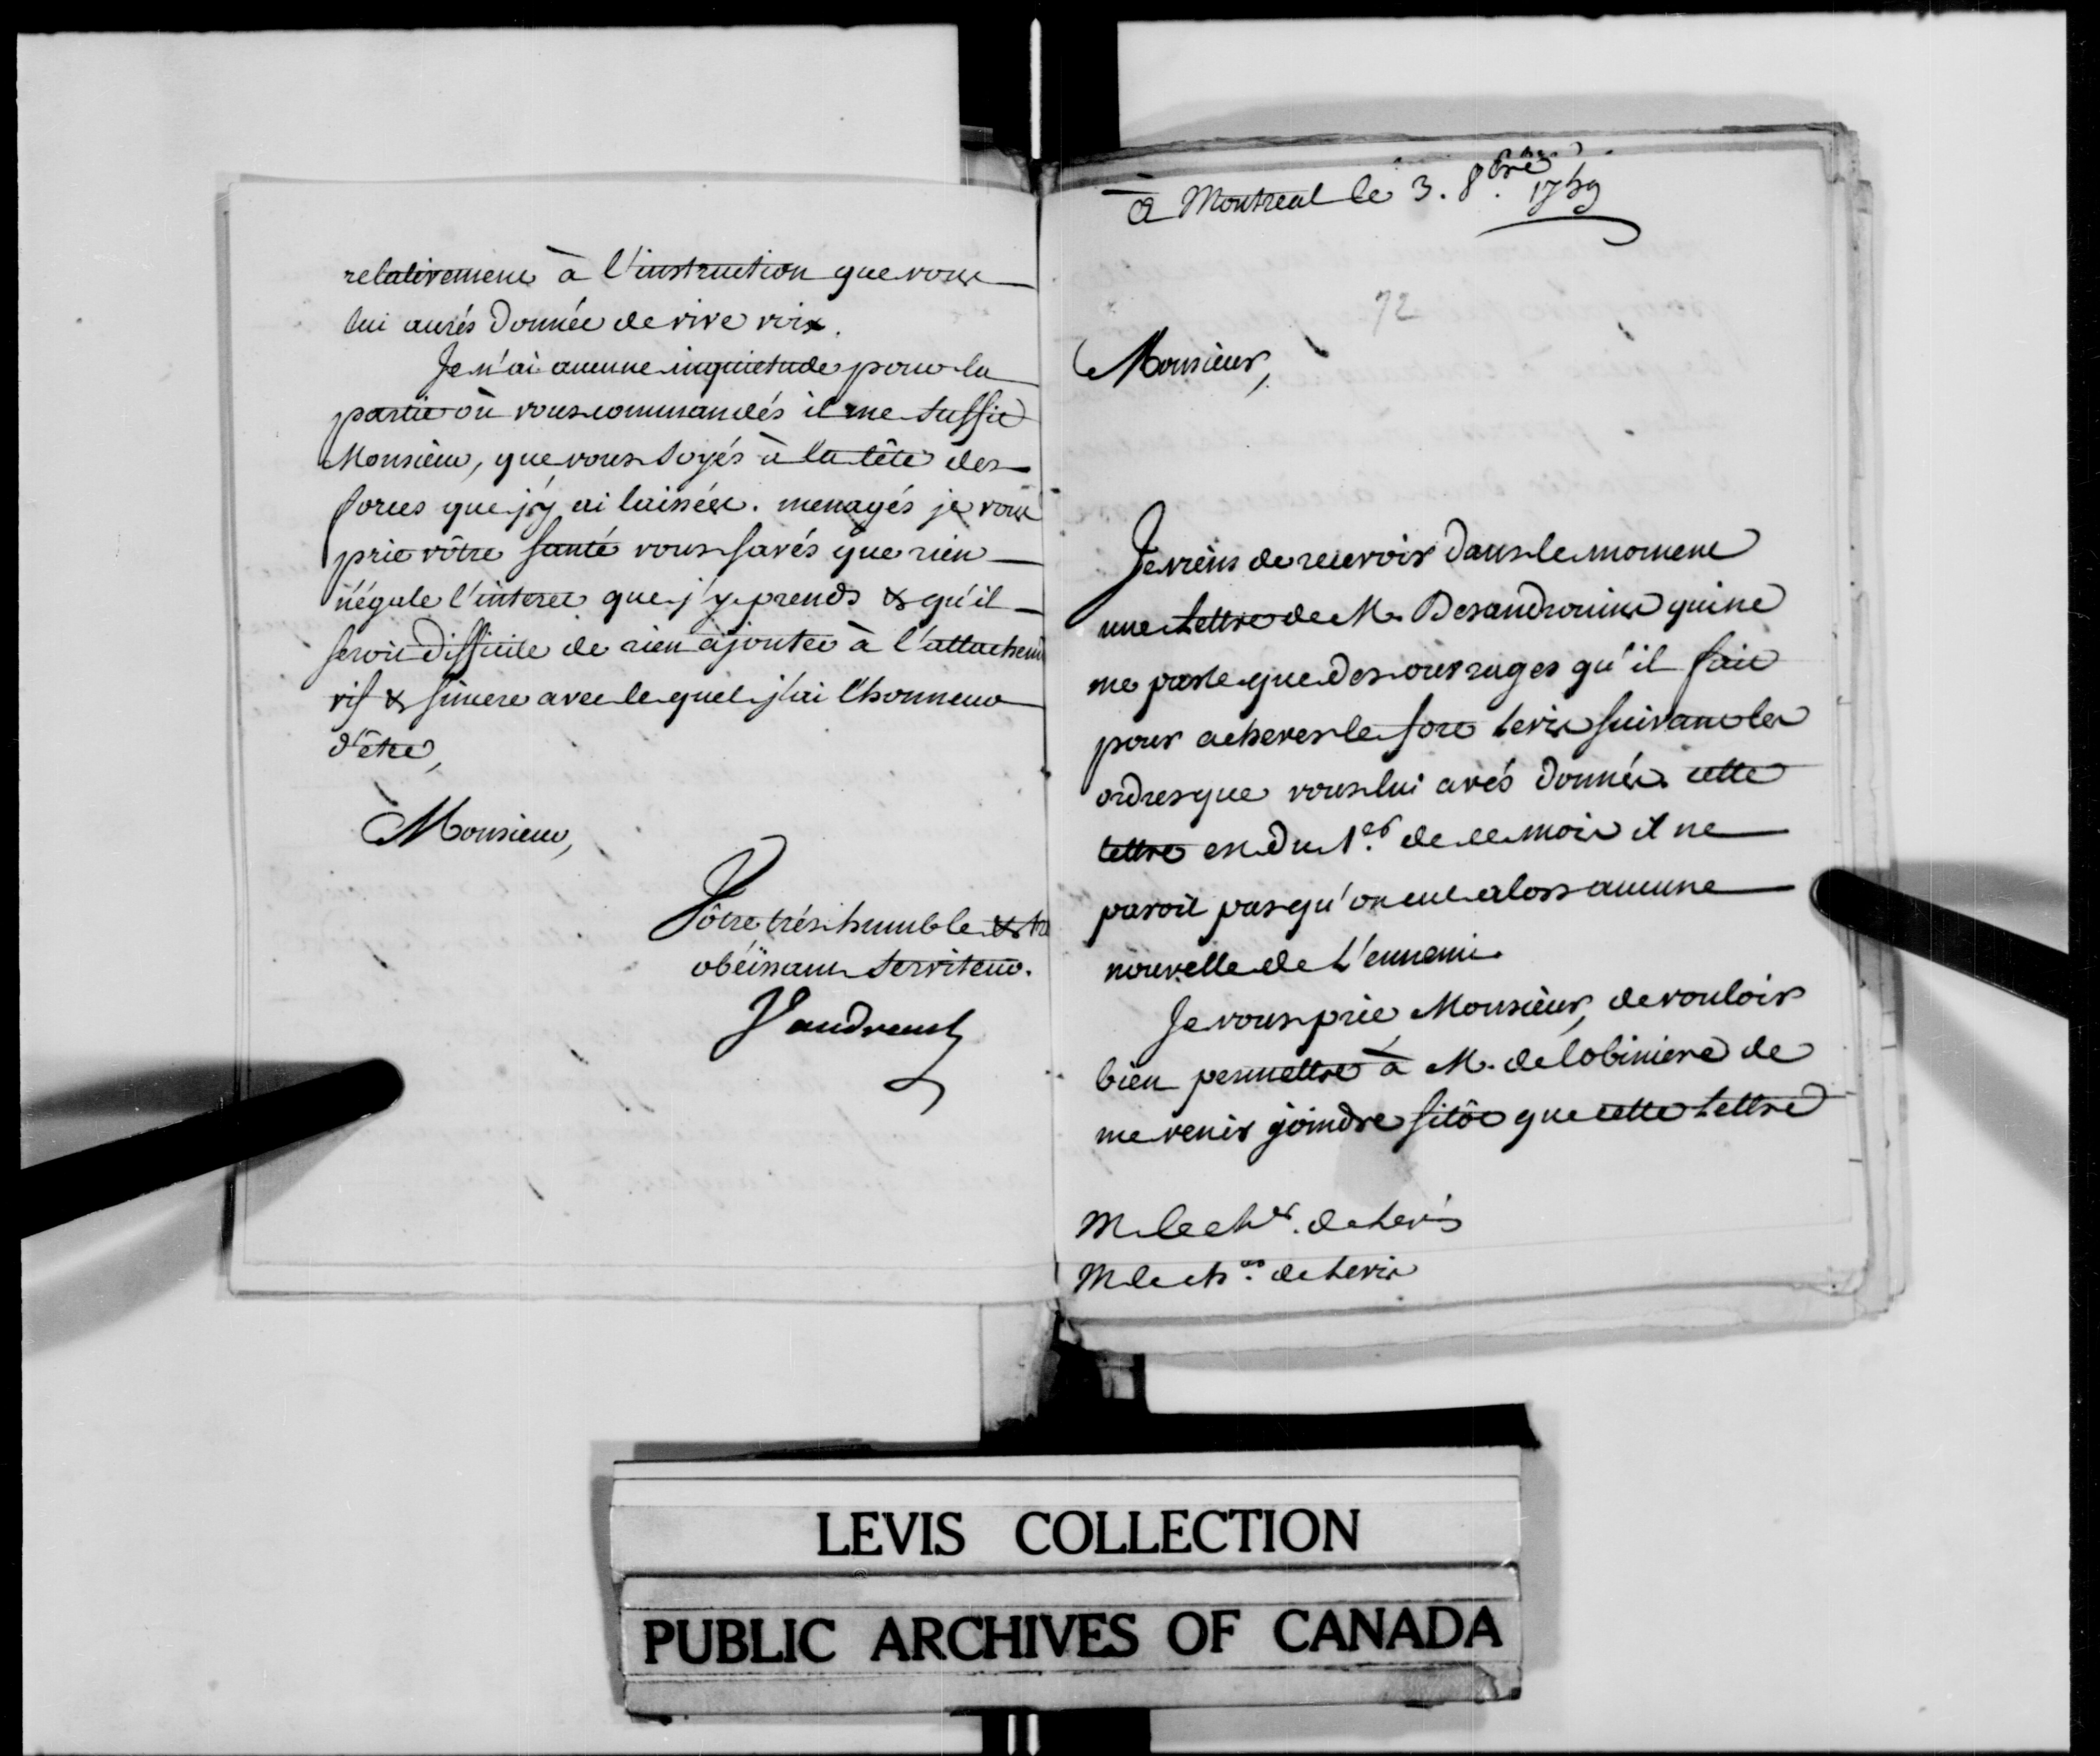 relativement à l'instruction que vous
lui aurés donnée de vive voix.
Je n'ai aucune inquietude pour la
partie où vous commandés il me suffit
Monsieur, que vous soyés à la tête des
forces que j'y ai laissées. menagés je vous
prie vôtre santé vous savés que rien
n'égale l'interet que j'y prends & qu'il
seroit difficile de rien ajouter à l'attachem
vif & sincere avec lequel j'ai l'honneur
d'être,
Monsieur,
Vôtre très humble & tr
obéissant serviteur.
Vaudreuil
à Montreal le 3. 8bre 1759
72
Monsieur,
Je viens de recevoir dans le moment
une Lettre de M. Desandrouins qui ne
me parle que des ouvrages qu'il fait
pour achever le fort Levis suivant les
ordres que vous lui avés donnés. cette
lettre est du 1er de ce mois il ne
paroit pas qu'on eut alors aucune
nouvelle de L'ennemi.
Je vous prie, Monsieur, de vouloir
bien permettre à M. de Lobiniere de
me venir joindre sitôt que cette Lettre
M. le cher. de Levis
M. le cher. de Levis
LEVIS COLLECTION
PUBLIC ARCHIVES OF CANADA